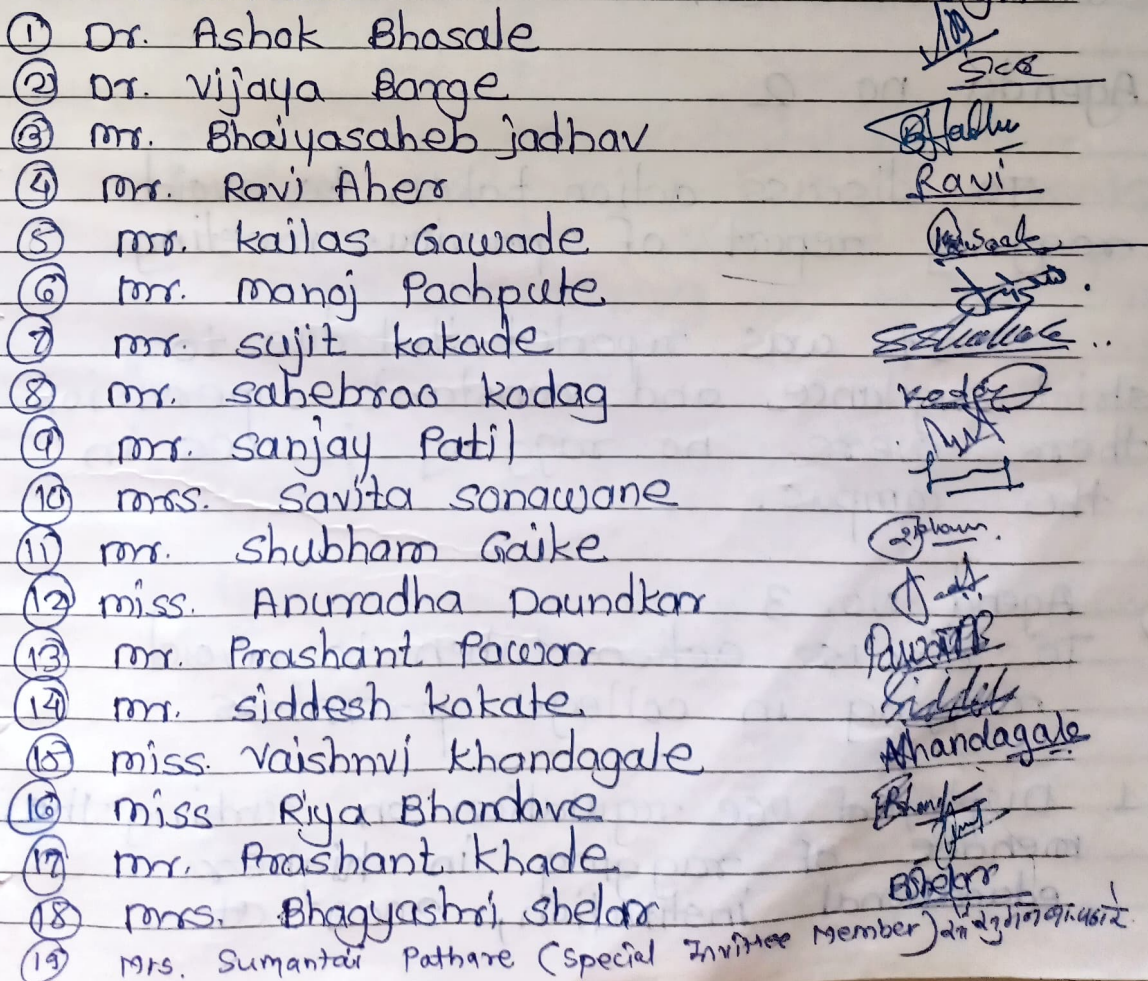 ① Dr. Ashok Bhosale
② Dr. Vijaya Barge
③ mr. Bhaiyasaheb jadhav
④ mr. Ravi Aher Ravi
⑤ mr. kailas Gawade
⑥ mr. manoj Pachpute
⑦ mr. sujit kakade
⑧ mr. sahebrao kodag
⑨ mr. sanjay Patil
⑩ mrs. Savita sonawane
⑪ mr. Shubham Gaike
⑫ miss. Anuradha Daundkar
⑬ mr. Prashant Pawar
⑭ mr. siddesh kokate
⑮ miss. Vaishnvi khandagale Khandagale
⑯ miss Riya Bhondave
⑰ mr. Prashant khade
⑱ mrs. Bhagyashri shelar BShelar
⑲ Mrs. Sumantai Pathare (Special Invittee Member)